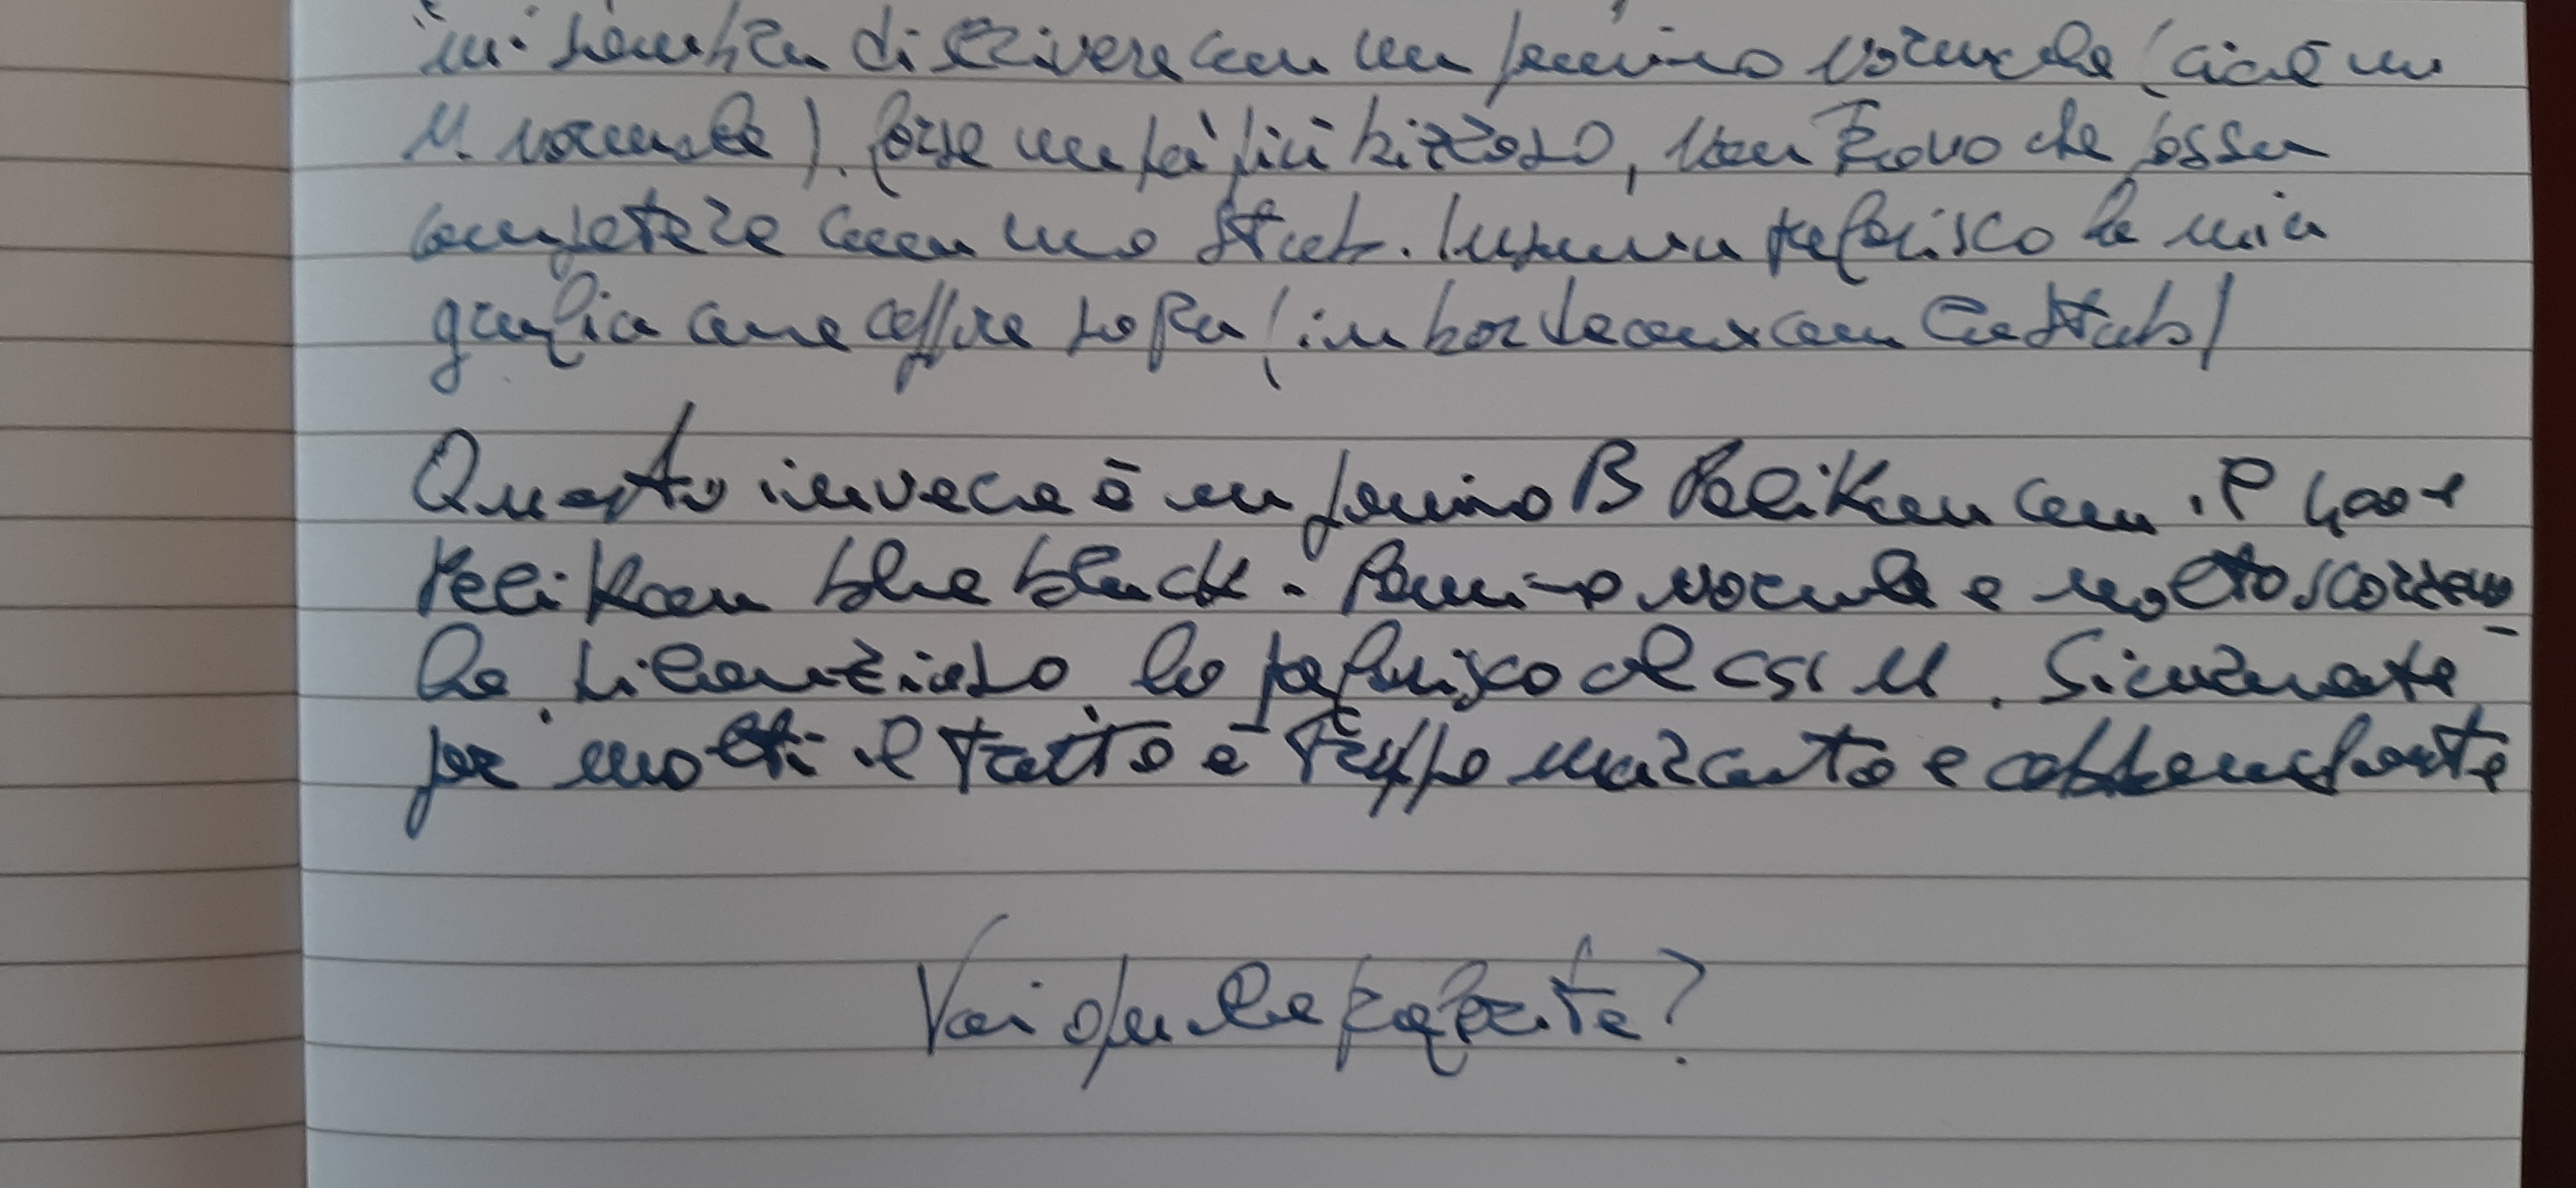 mi sembra di scrivere con un pennino normale (cioè un
M. normale). Forse un po' più bizzoso, non trovo che possa
competere con uno Stub. Insomma preferisco la mia
grafia come appare sopra (in bordeaux con lo Stub)
Questo invece è un pennino B Pelikan con il 4001
Pelikan blue black. Pennino normale e molto scorrevo
le, bilanziato, lo preferisco al CSI M. Sicuramente
per molti il tratto è troppo marcato e abbondante
Voi quale preferite?